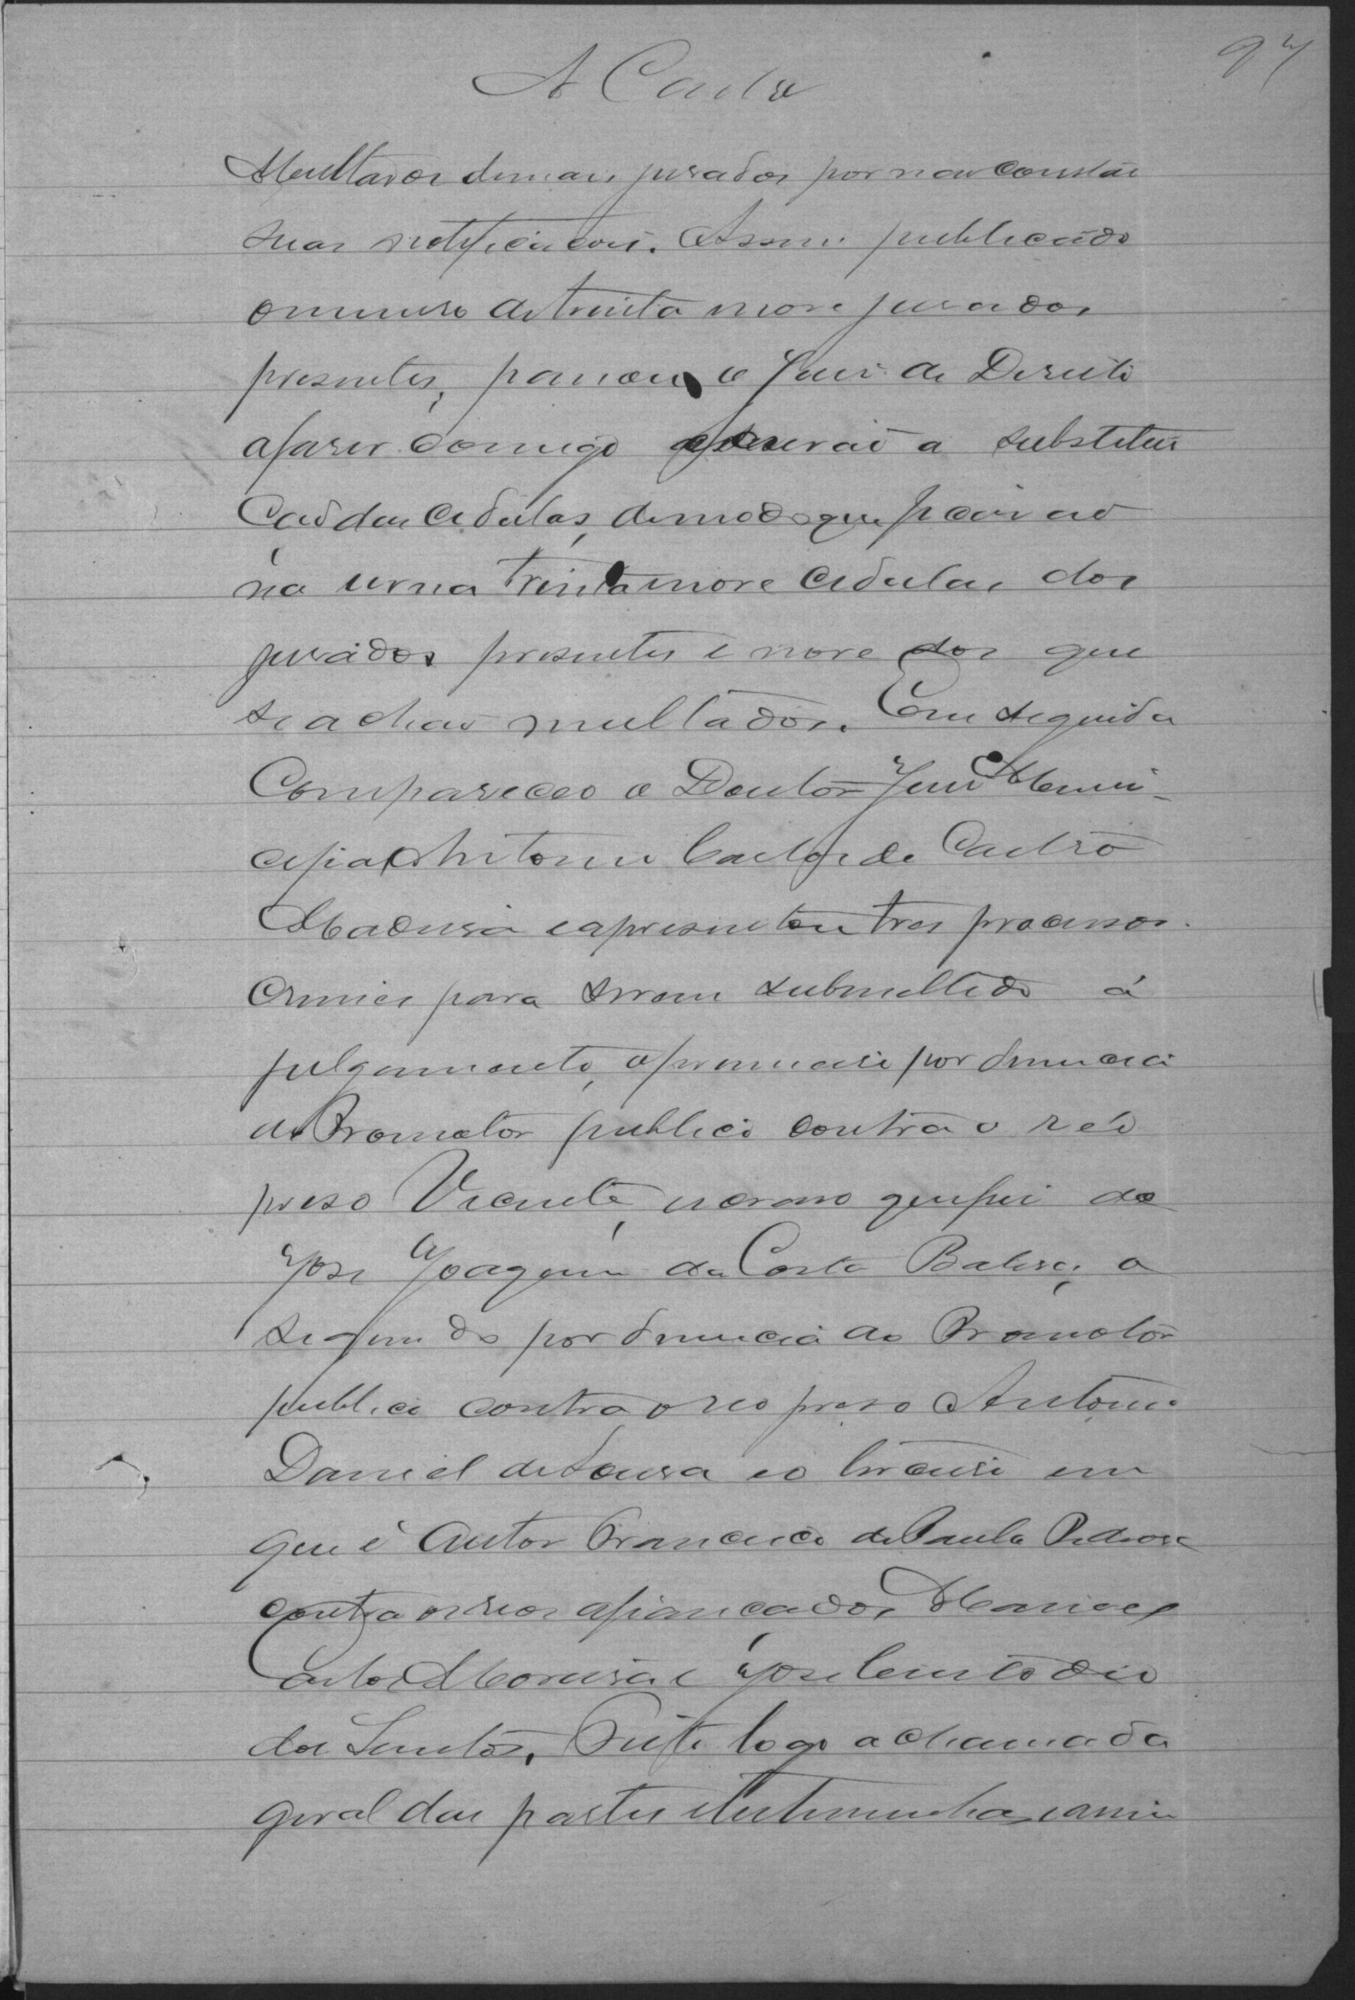 97
A Costa
Multar os demais jurados por não constar
suas notificacois. Assim publicado
o numero de trinta nove jurados
presentes, passou o Juiz de Direito
afaser comigo escrivaõ a substitui
Caõ das cedulas, de modo que ficaraõ
na urna trinta nove cedulas dos
jurados presentes e nove dos que
se achaõ multados. Em seguida
Compareceo o Doutor Juiz Muni
cipal Antonio Carlos de Castro
Madeira e apresentou tres processos
Crimes para serem submettido á
julgamento, o primeiro por denuncia
do Promotor publico contra o réo
preso Vicente, escravo que foi de
José Joaquim da Costa
segundo por denuncia do Promotor
publico contra o reo preso Antonio
Daniel de Sousa e o terceiro em
que é Autor Francisco de Paula Pedrosa
contra os reos afiançados Manoel
Carlos Moreira e José Custodio
dos Santos. Feita logo a chamada
geral das partes e testemunhas, e assim